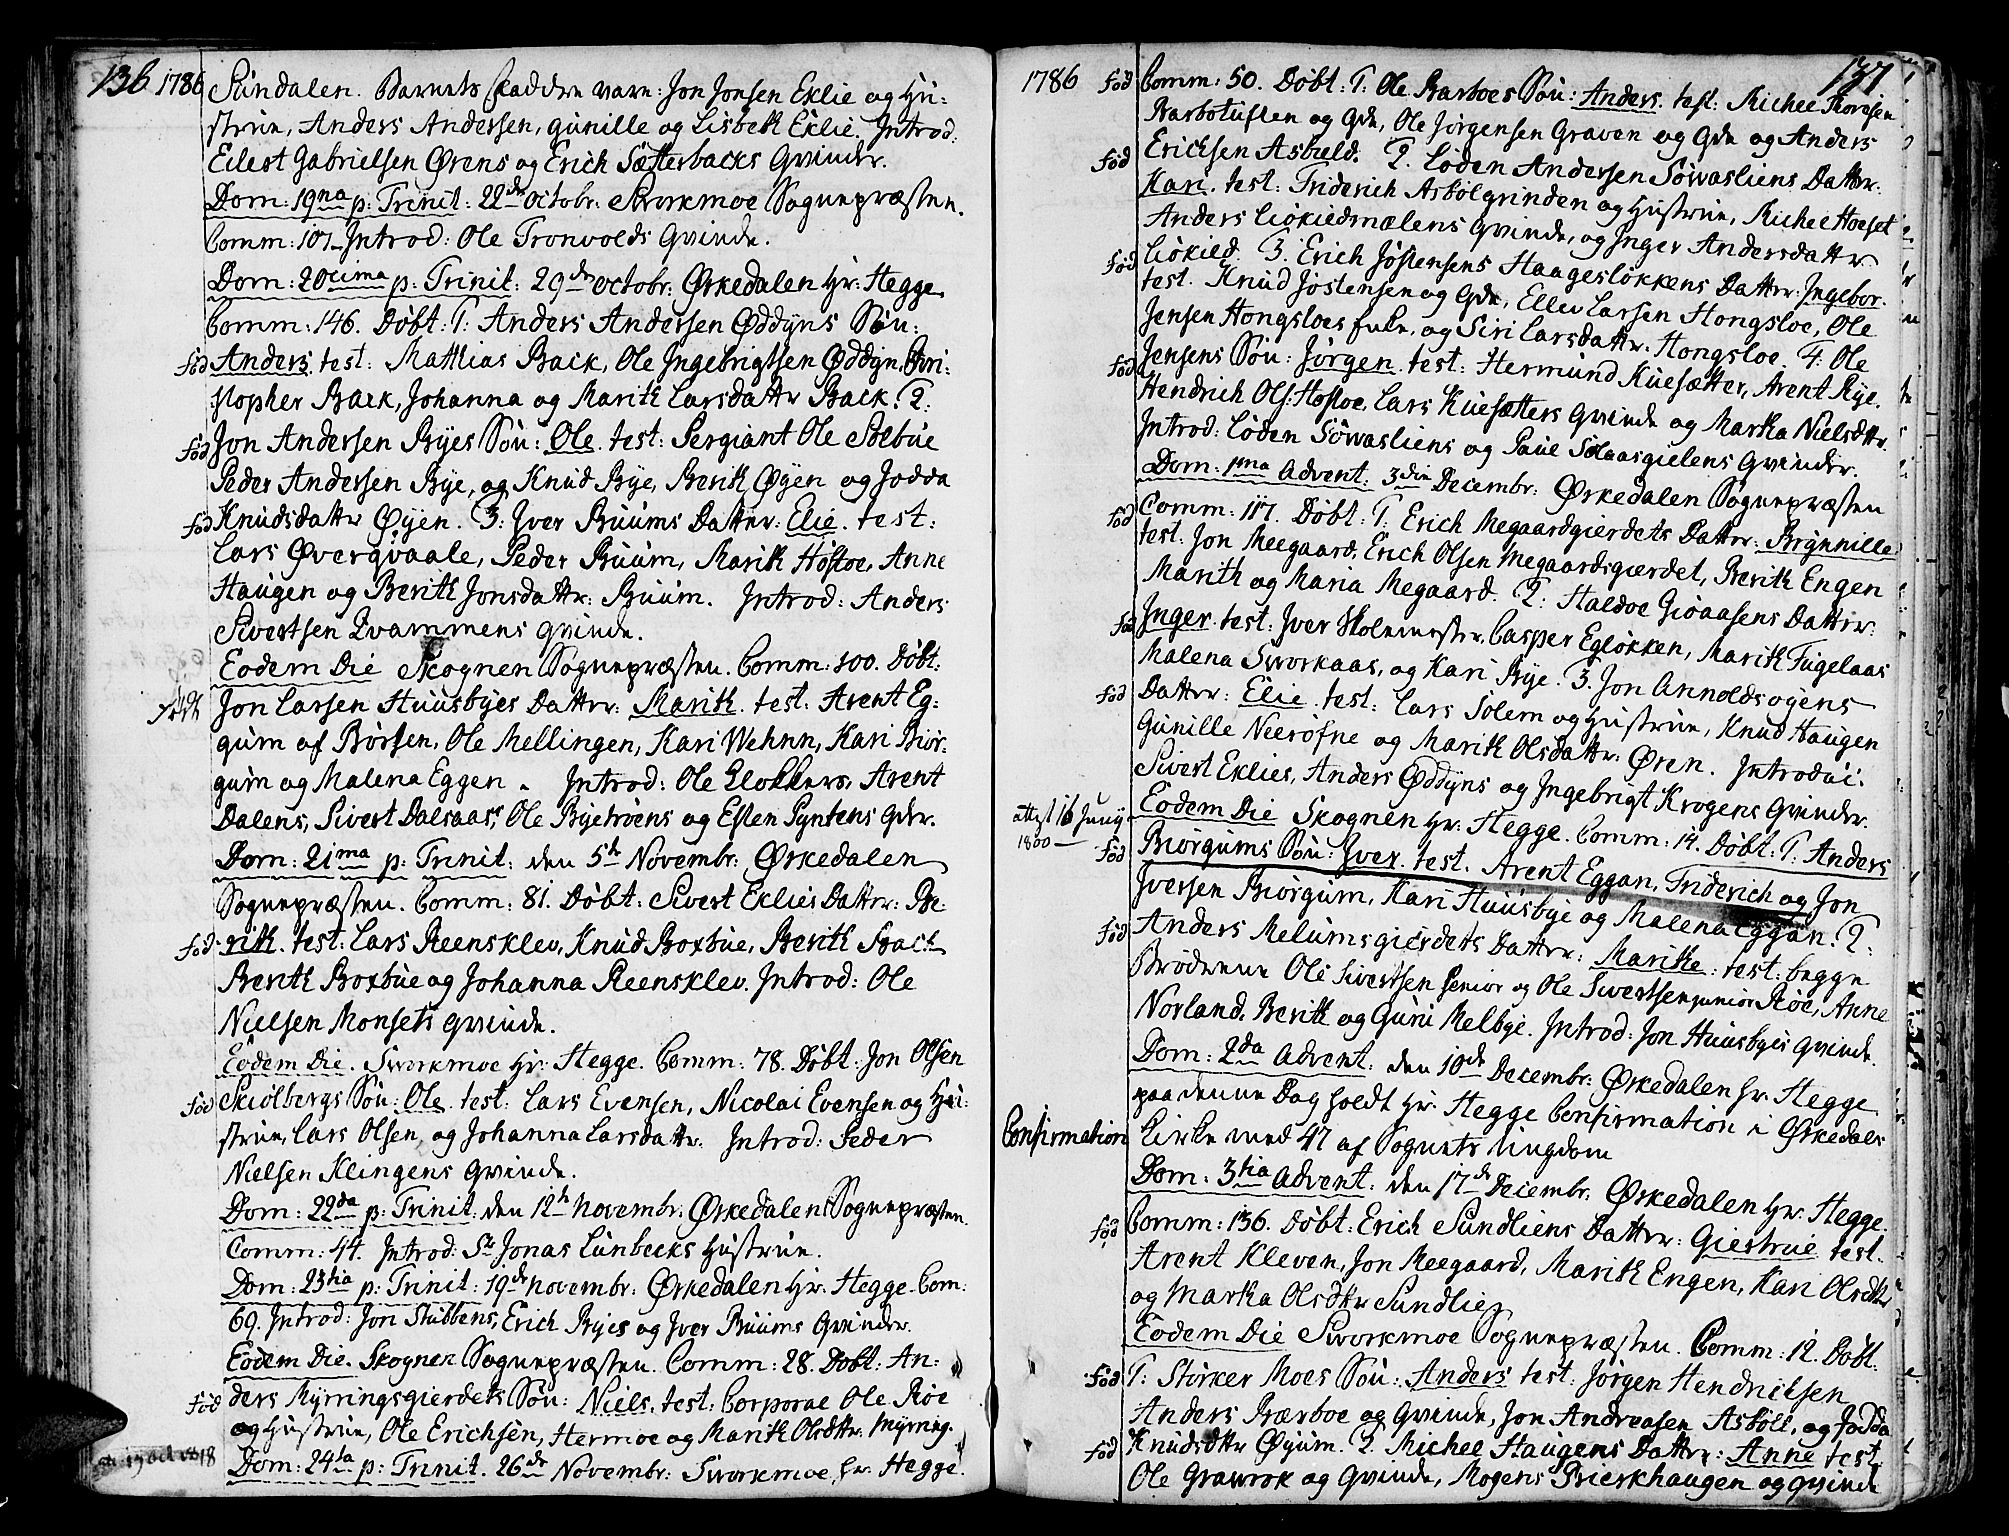 136 1786
Sundalen. Barnets Faddre vare: Jon Jonsen Eklie og Hu-
strue, Anders Andersen, Gunille og Lisbeth Eklie. Introd:
Eilert Gabrielsen Ørens og Erich Sætterbacks Qvinder.
Dom: 19na p: Trinit: 22de Octobr: Svorkmoe Sognepræsten.
Comm: 107. Introd: Ole Tronvolds Qvinde.
Dom: 20cima p: Trinit: 29de Octobr: Ørkedalen Hr: Hegge
Comm: 146. Døbt: 1: Anders Andersen Øddyns Søn:
fød Anders. test: Matthias Back, Ole Ingebrigtsen Øddyn, Chri-
stopher Back, Johanna og Marith Larsdattr Back. 2:
fød Jon Andersen Byes Søn: Ole. test: Sergiant Ole Solbue
Peder Andersen Bye, og Knud Bye, Berith Øyen og Jodda
fød Knudsdattr Øyen. 3: Iver Buums Datter: Elie. test:
Lars Overqvaale, Peder Buum, Marith Hostoe, Anne
Haugen og Berith Jonsdattr: Buum. Introd: Anders
Sivertsen Qvammens Qvinde.
Eodem Die Skognen Sognepræsten. Comm: 100. Døbt:
født Jon Larsen Huusbyes Datter: Marith. test: Arent Eg-
gum af Børsen, Ole Mellingen, Kari Wehnn, Kari Biør-
gum og Malena Eggen. Introd: Ole Klokkers, Arent
Dalens, Sivert Dalsaas, Ole Byetrøens og Esten Pyntens Qvdr.
Dom: 21ma p: Trinit: den 5te Novembr: Ørkedalen
Sognepræsten. Comm: 81. Døbt: Sivert Eklies Datter: Be-
fød rith. test: Lars Reensklev, Knud Boxbue, Berith Back
Berith Boxbue og Johanna Reensklev. Introd: Ole
Nielsen Monsets Qvinde.
Eodem Die. Svorkmoe Hr: Hegge. Comm: 78. Døbt: Jon Olsen
fød Skiølbergs Søn: Ole. test: Lars Evensen, Nicolai Evensen og Hu-
strue, Lars Olsen, og Johanna Larsdattr. Introd: Peder
Nielsen Klingens Qvinde.
Dom: 22da p: Trinit: den 12te Novembr: Ørkedalen Sognepræsten.
Comm: 44. Introd: Sr Jonas Lunbecks Hustrue.
Dom: 23tia p: Trinit: 19de Novembr: Ørkedalen Hr: Hegge. Com:
69. Introd: Jon Stubbens, Erich Byes og Iver Buums Qvinder.
Eodem Die. Skognen Sognepræsten. Comm: 28. Døbt: An-
fød ders Myrringsgierdets Søn: Niels. test: Corporal Ole Røe
og Hustrue, Ole Erichsen, Hermoe og Marith Olsdttr: Myrring.
19 Oct 1818 Dom: 24ta p: Trinit. 26de Novembr: Svorkmoe hr: Hegge.
1786 137
fød Comm: 50. Døbt: 1: Ole Barboes Søn: Anders. test: Michel Thoresen
Barbotuften og Qde, Ole Jørgensen Graven og Qde og Anders
fød Erichsen Asbøld. 2. Loden Andersen Sowasliens Datter:
Kari. test: Friderich Asbølgrinden og Hustrue, Michel Hoeset
Anders Liøkiedmælens Qvinde, og Inger Andersdattr
fød Liøkild. 3. Erich Jøstensens Haagesløkkens Datter: Ingebor.
test. Knud Jostensen og Qde, Ellev Larsen Hongsloe, Ole
Jensen Hongsloes Enke, og Siri Larsdattr. Hongsloe. 4: Ole
fød Jensens Søn: Jørgen. test: Hermund Kuesætter, Arent Rye.
Hendrich Ols: Hostoe, Lars Kuesætters Qvinde og Martha Nielsdttr.
Introd: Loden Sowasliens og Paul Solaasgielens Qvinder.
Dom: 1ma Advent: 3die Decembr: Ørkedalen Sognepræsten
fød Comm: 117. Døbt: 1: Erich Megaardgierdets Datter: Brynnille
test: Jon Meegaard, Erich Olsen Megaardsgierdet, Berith Engen
Marith og Maria Megaard. 2: Haldoe Gioaasens Datter:
fød Inger. test: Iver Skolemester, Casper Egløkken, Marith Fugelaas
Malena Svorkaas, og Kari Bye. 3. Jon Arnoldsøyens
fød Datter: Elie. test: Lars Solem og Hustrue, Knud Haugen
Gunille Neerofne og Marith Olsdattr: Øren. Introdui:
Sivert Eklies, Anders Øddyns og Ingebrigt Krogens Qvinder.
attest 16 Juny 1800 Eodem Die Skognen Hr: Hegge. Comm: 14. Døbt: 1: Anders
fød Biørgums Søn: Iver. test. Arent Eggan, Friderich og Jon
Iversen Biørgum, Kari Huusbye og Malena Eggan. 2:
fød Anders Melumsgierdets Datter: Marithe: test: begge
Brødrene Ole Sivertsen Senior og Ole Sivertsen junior Røe, Anne
Norland, Berith og Guru Melbye. Introd: Jon Huusbyes Qvinde.
Dom: 2da Advent: den 10de Decembr: Ørkedalen hr: Hegge
paa denne Dag holdt Hr. Hegge Confirmation i Ørkedals
Confirmation Kirke med 47 af Sognets Ungdom
Dom: 3tia Advent: den 17de Decembr: Ørkedalen Hr: Hegge.
fød Comm: 136. Døbt: Erich Sundliens Datter: Giestrue test.
Arent Kleven, Jon Meegaard, Marith Engen, Kari Olsdttr
og Martha Olsdttr Sundlien
Eodem Die Svorkmoe Sognepræsten. Comm: 12. Døbt.
fød 1: Størker Moes Søn: Anders test: Jørgen Hendrichsen
Anders Bærboe og Qvinde, Jon Andreasen Asbøll, og Jodda
fød Knudsdttr Øyum. 2. Michel Haugens Datter: Anne test.
Ole Grawrok og Qvinde, Mogens Bierkhaugen og Qvinde